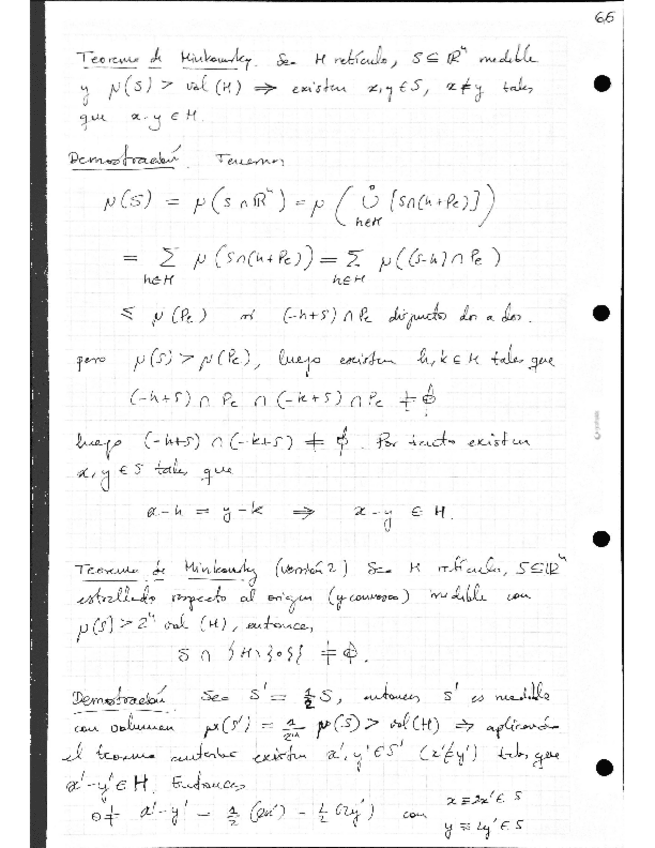 65
Teorema de Minkowsky. Sea H retículo, S ⊆ ℝⁿ medible
y μ(S) > vol (H) ⇒ existen x, y ∈ S, x ≠ y tales
que x - y ∈ H.
Demostración. Tenemos
μ(S) = μ(S ∩ ℝⁿ) = μ ( ⋃° [S∩(h+Pe)] )
h∈H
= Σ μ (S∩(h+Pe)) = Σ μ((S-h) ∩ Pe)
h∈H h∈H
≤ μ (Pe) si (-h+S) ∩ Pe disjuntos dos a dos.
pero μ(S) > μ(Pe), luego existen h, k ∈ H tales que
(-h+S) ∩ Pe ∩ (-k+S) ∩ Pe ≠ ∅
luego (-h+S) ∩ (-k+S) ≠ ∅. Por tanto existen
x, y ∈ S tales que
x - h = y - k ⇒ x - y ∈ H.
Teorema de Minkowsky (versión 2) Sea H retículo, S⊆ℝⁿ
estrellado respecto al origen (y convexo) medible con
μ(S) > 2ⁿ vol (H), entonces,
S ∩ {H\{0}} ≠ ∅.
Demostración Sea S' = 1/2 S, entonces S' es medible
con volumen μ(S') = 1/2ⁿ μ(S) > vol(H) ⇒ aplicando
el teorema anterior existen x', y' ∈ S' (x' ≠ y') tales que
x' - y' ∈ H. Entonces
0 ≠ x' - y' = 1/2 (2x') - 1/2 (2y') con x = 2x' ∈ S
y = 2y' ∈ S